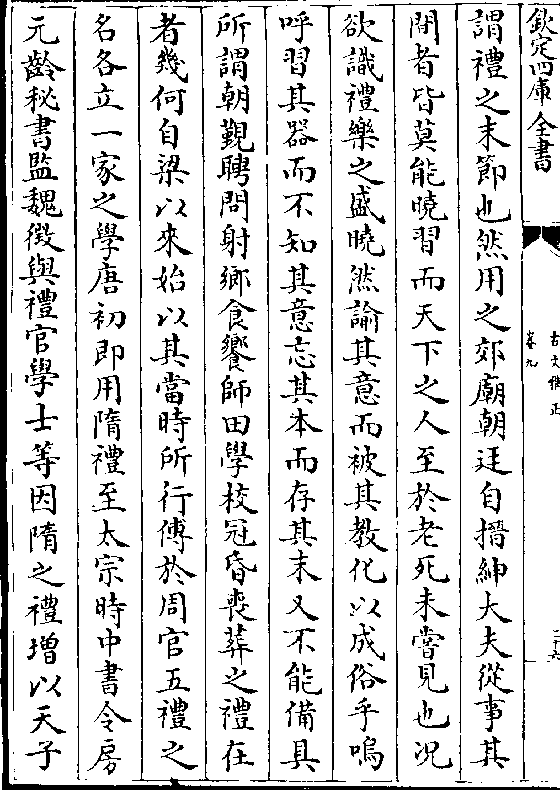 欽定四庫全書
古文雅正
卷九
二十六
謂禮之末節也然用之郊廟朝廷自搢紳大夫從事其
間者皆莫能曉習而天下之人至於老死未嘗見也况
欲識禮樂之盛曉然諭其意而被其教化以成俗乎嗚
呼習其器而不知其意忘其本而存其末又不能備具
所謂朝覲聘問射鄉食饗師田學校冠昏喪葬之禮在
者幾何自梁以來始以其當時所行傅於周官五禮之
名各立一家之學唐初即用隋禮至太宗時中書令房
元齡秘書監魏徴與禮官學士等因隋之禮增以天子